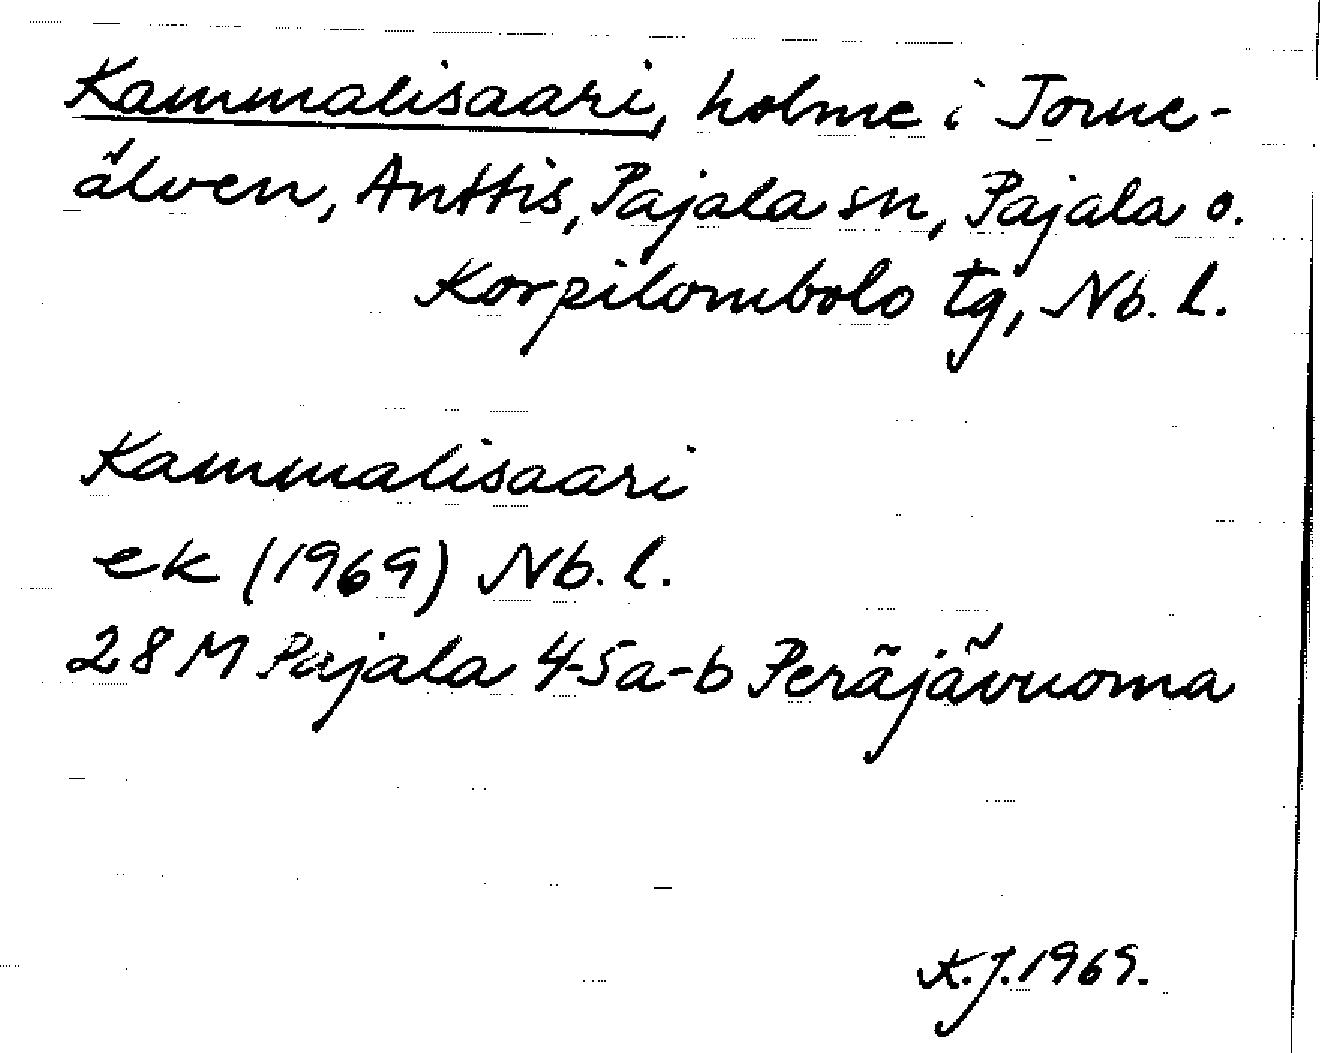 Kammalisaari, holme i Torne-
älven, Anttis, Pajala sn, Pajala o.
Korpilombolo tg, Nb. l.
Kammalisaari
ek (1969) Nb. l.
28 M Pajala 4-5a-b Peräjävuoma
K.J. 1969.